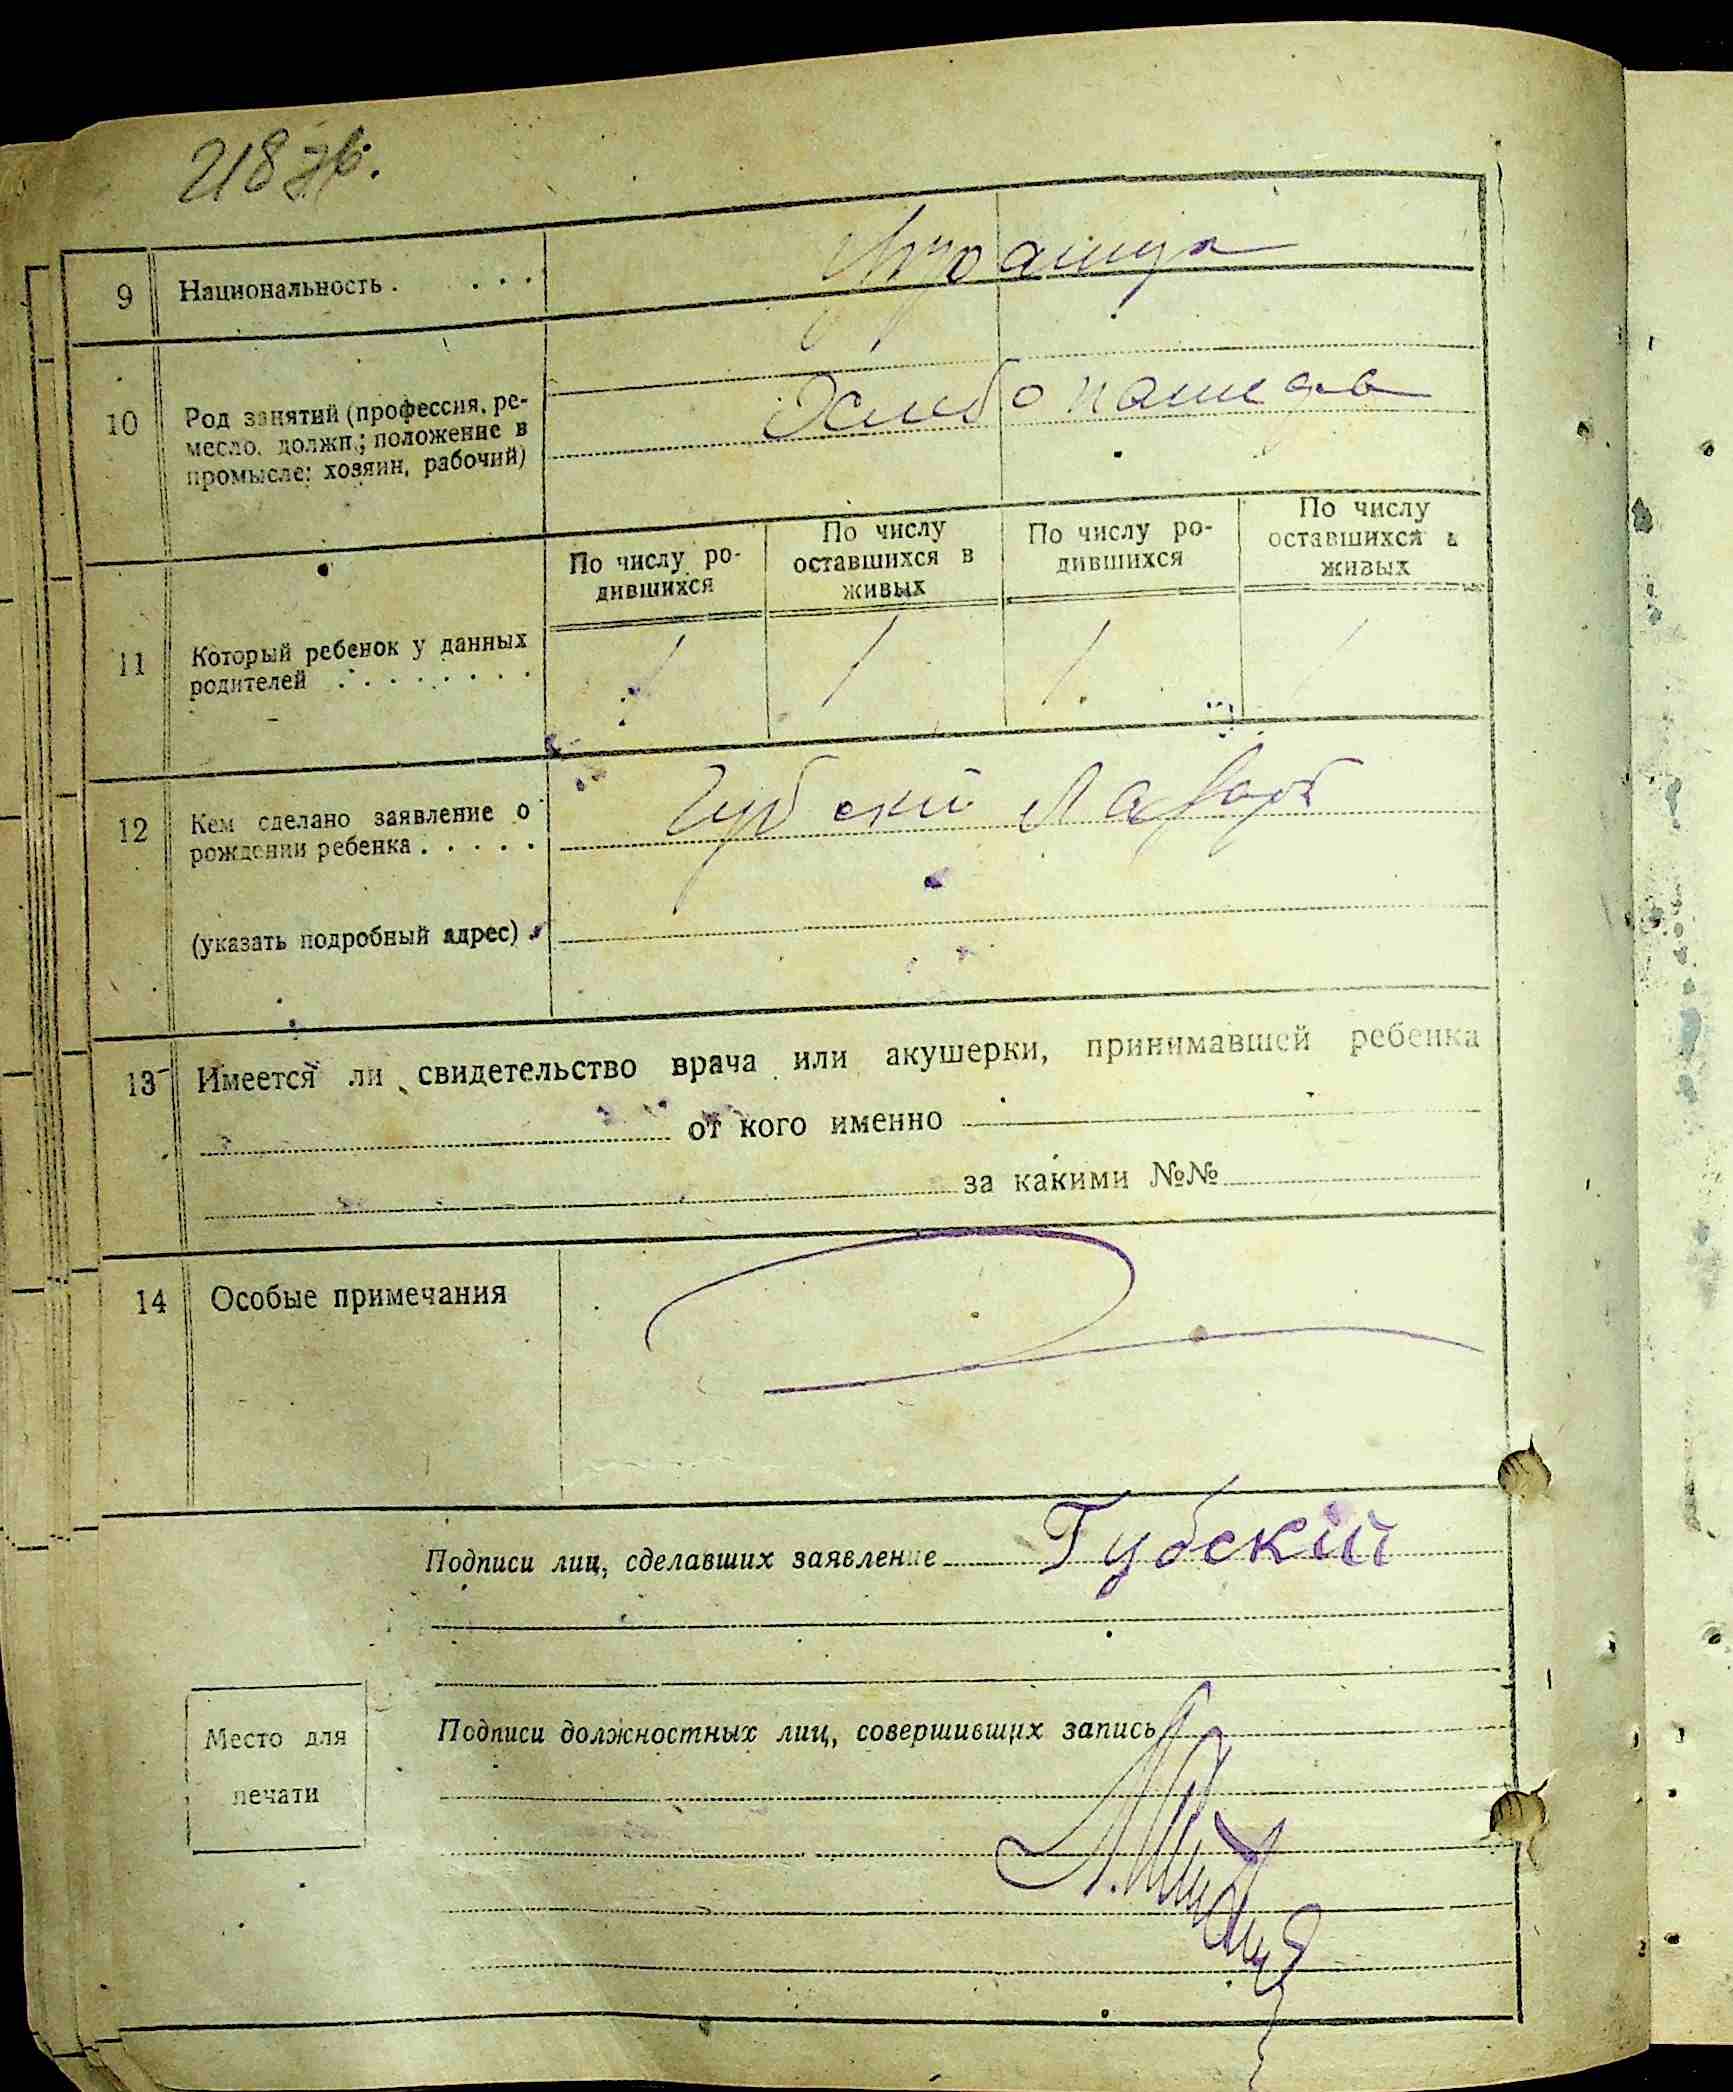 218 зв.
9 Национальность . . . .
Украинцы
10 Род занятий (профессия, ре-
месло, должн.; положение в
промысле: хозяин, рабочий)
Хлебопашество
По числу ро-
дившихся
По числу
оставшихся в
живых
По числу ро-
дившихся
По числу
оставшихся в
живых
11 Который ребенок у данных
родителей . . . . . . . .
1 1 1 1
12 Кем сделано заявление о
рождении ребенка . . . . .
Губский Лазарь
(указать подробный адрес) .
13 Имеется ли свидетельство врача или акушерки, принимавшей ребенка
от кого именно
за какими №№
14 Особые примечания
Подписи лиц, сделавших заявление Губскій
Подписи должностных лиц, совершивших запись
Место для
печати